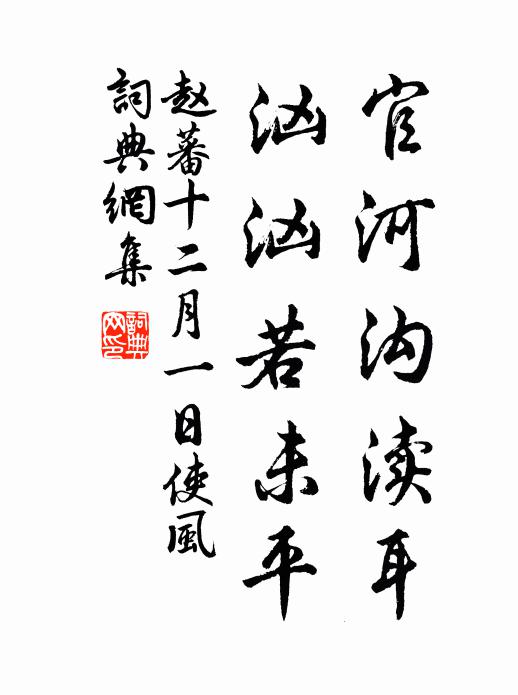 官河沟渎耳
汹汹若未平
赵蕃十二月一日使风
詞典網集
詞典网印